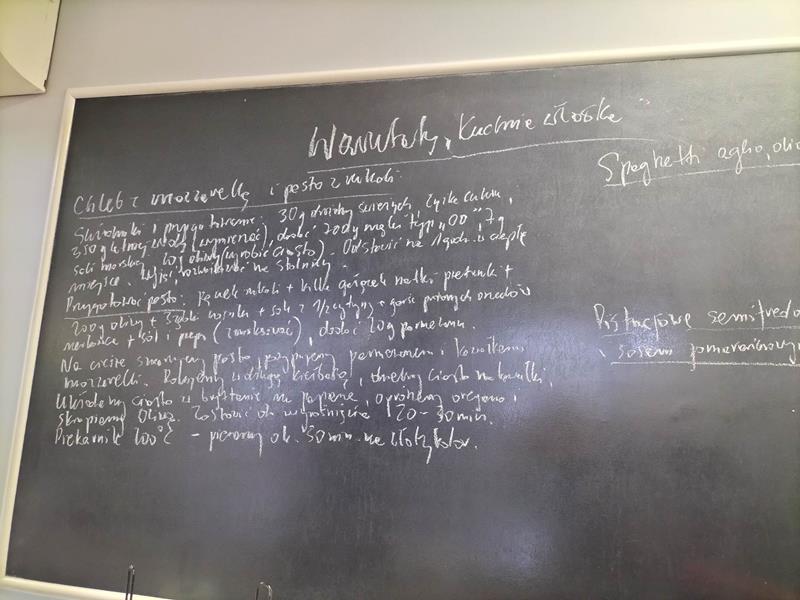 Warsztaty „Kuchnia włoska"
Chleb z mozzarellą i pesto z rukoli
Spaghetti aglio, olio
Składniki i przygotowanie: 30 g drożdży świeżych, łyżka cukru,
350 g letniej wody (wymieszać), dodać 700 g mąki typ „00", 7 g
soli morskiej, 20 g oliwy (wyrobić ciasto). Odstawić na 1 godz. w ciepłe
miejsce. Wyjąć, rozwałkować na stolnicy.
Przygotować pesto: Pęczek rukoli + kilka gałązek natki pietruszki +
200 g oliwy + ząbki czosnku + sok z 1/2 cytryny + garść prażonych orzechów
nerkowca + sól i pieprz (zmiksować), dodać 20 g parmezanu.
Na cieście smarujemy pesto, posypujemy parmezanem i kawałkami
mozzarelli. Rolujemy w długą kiełbasę, dzielimy ciasto na kawałki.
Układamy ciasto w brytfannie na papierze, oprószamy oregano i
skrapiamy oliwą. Zostawić do wyrośnięcia 20-30 min.
Piekarnik 200°C - pieczemy ok. 30 min. na złoty kolor.
Pistacjowe semifreddo
z sosem pomarańczowym